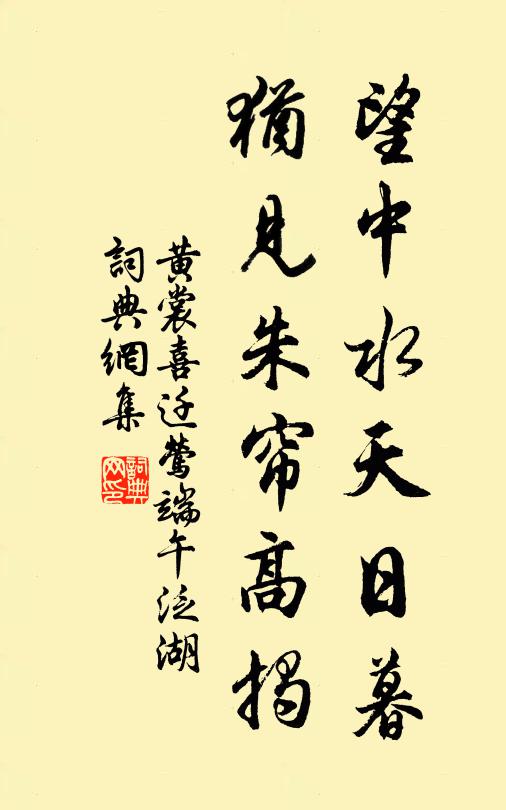 望中水天日暮
猶見朱帘高揭
黄裳喜迁鶯端午泛湖
詞典網集
詞典
网印